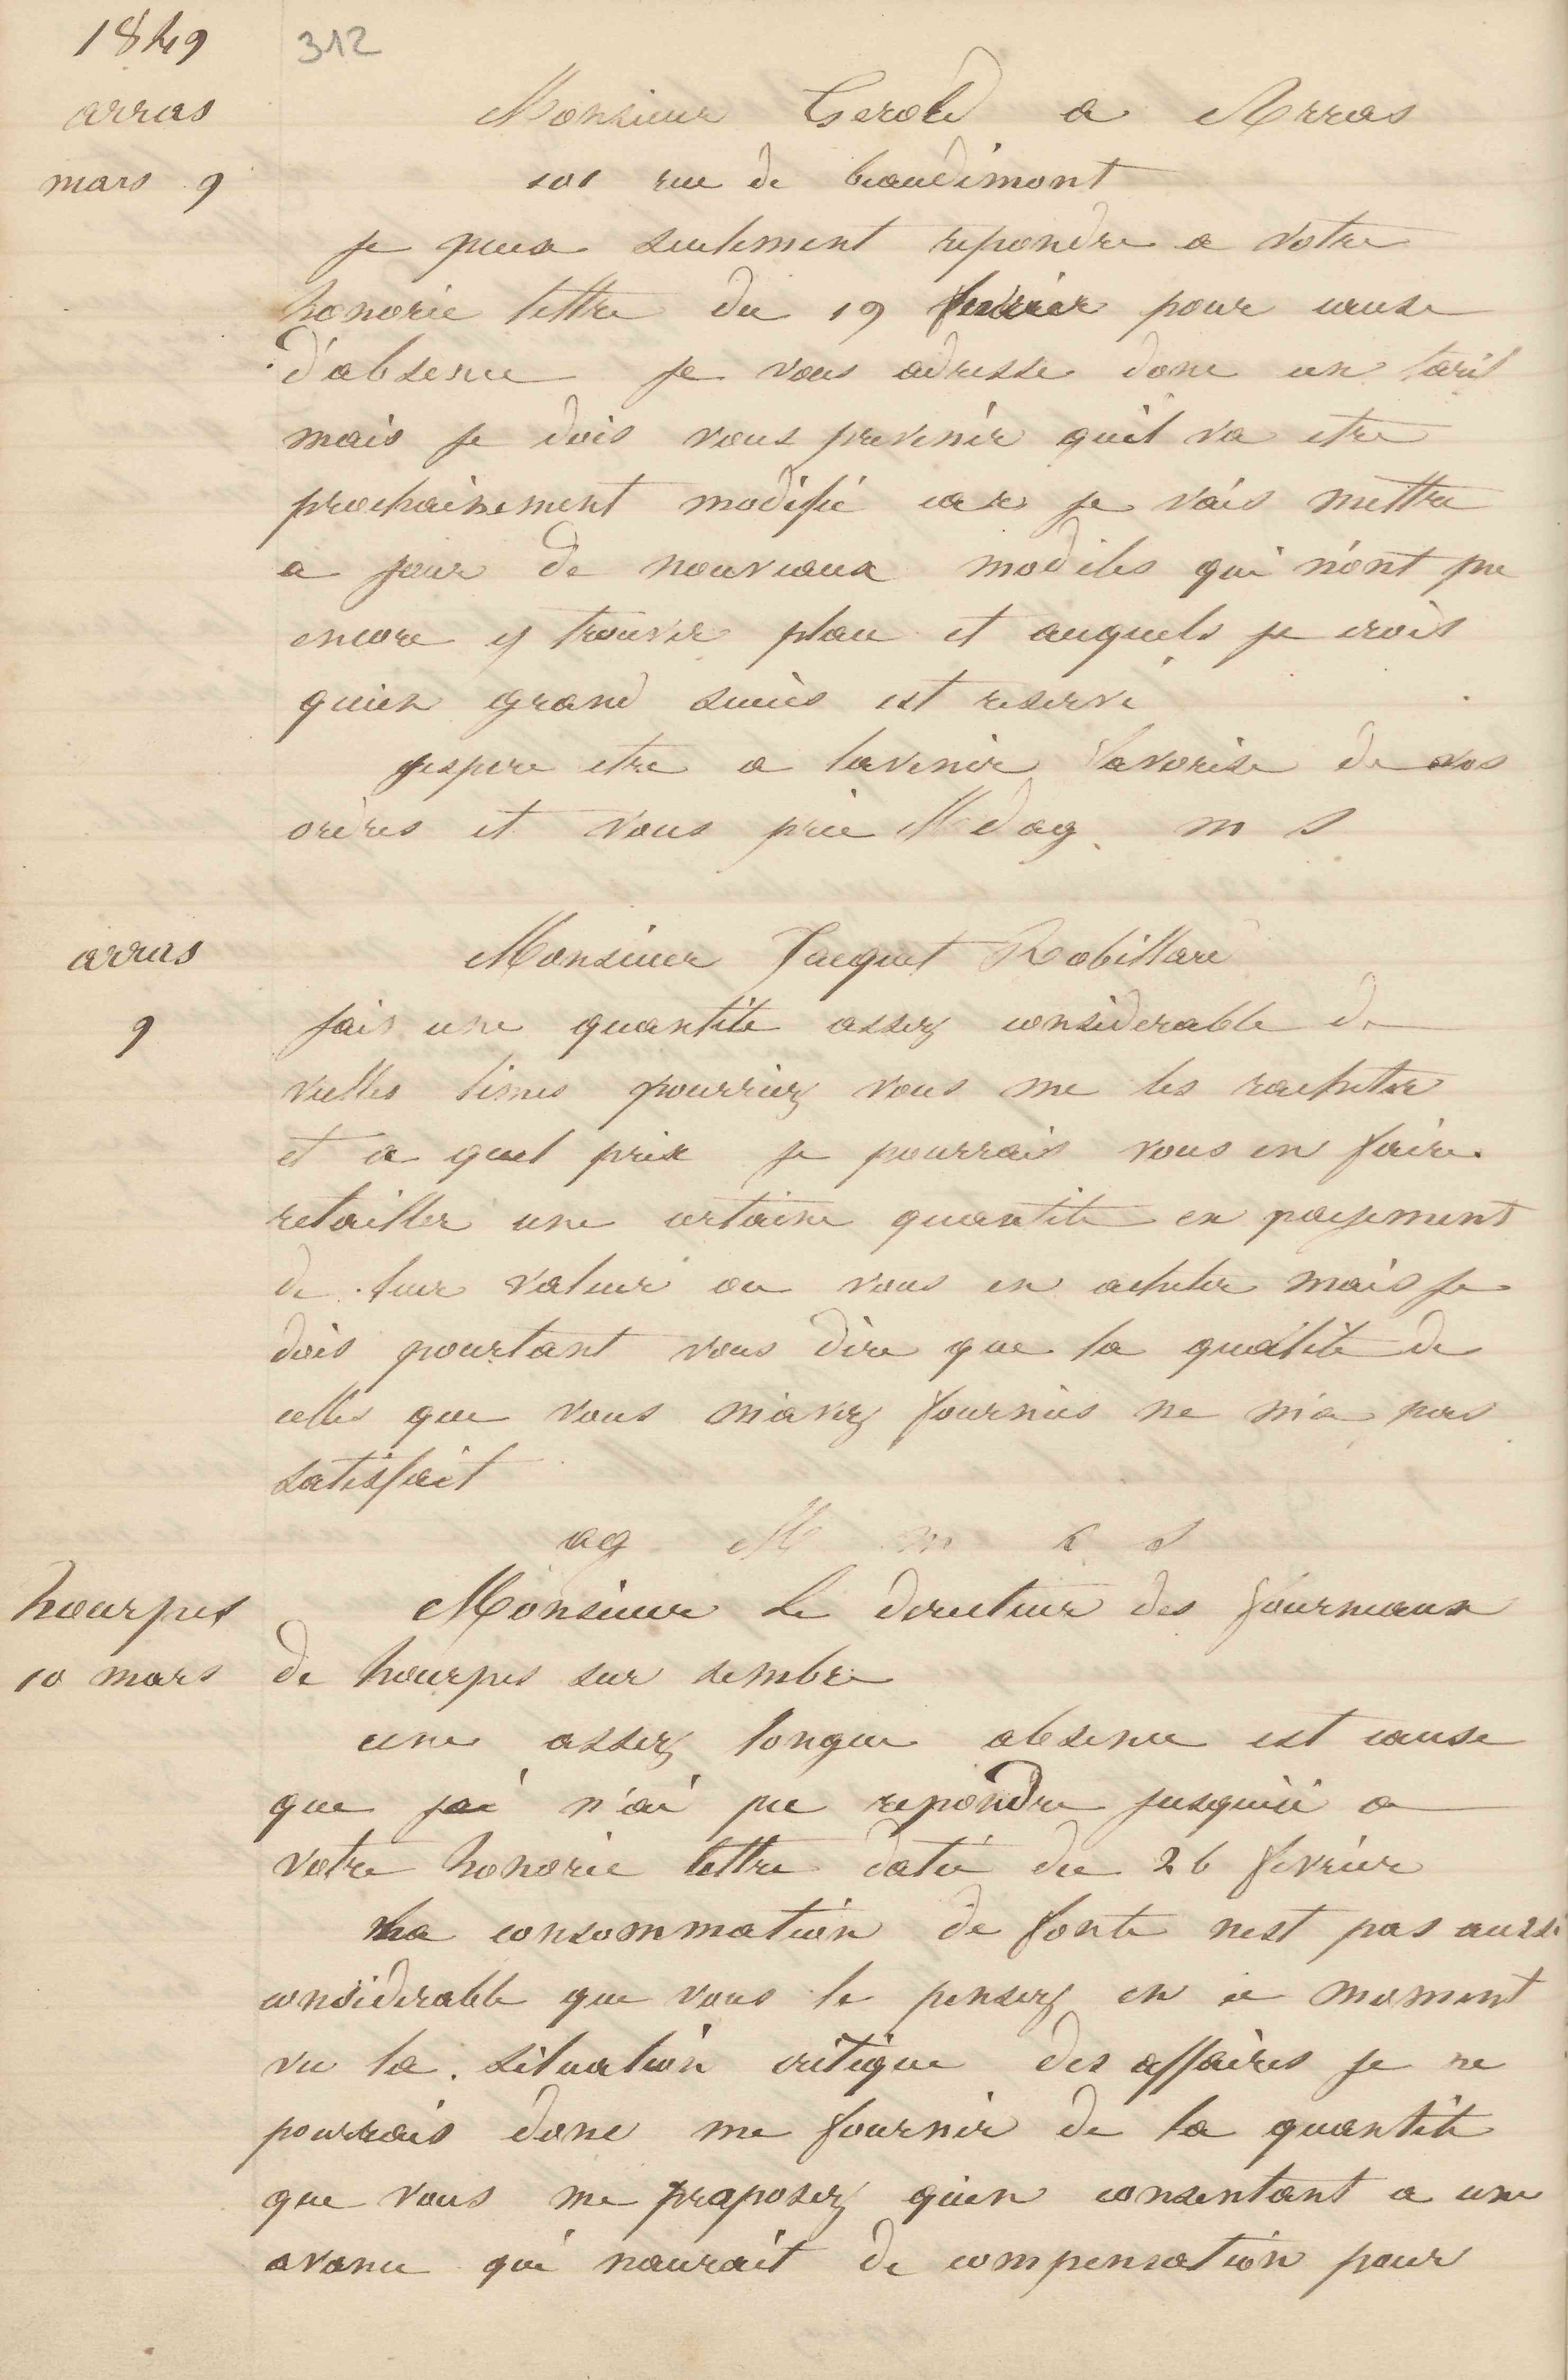 1849
312
arras
mars 9
Monsieur Gerold a Arras
101 rue de beaudimont
je peux seulement repondre a votre
honorée lettre du 19 fevrier pour cause
d'absence je vous adresse donc un tarif
mais je dois vous prevenir qu'il va etre
prochainement modifié car je vais mettre
a jour de nouveaux modeles qui n'ont pu
encore y trouver place et auquels je crois
qu'un grand succès est reservé
jespere etre a lavenir favorise de vos
ordres et vous prie M dag. m s
arras
9
Monsieur Jacquet Robillard
jais une quantite assez considerable de
vielles limes pourriez vous me les racheter
et a quel prix je pourrais vous en faire
retailler une certaine quantite en payement
de leur valeur ou vous en acheter mais je
dois pourtant vous dire que la qualité de
celles que vous m'avez fournies ne m'a pas
satisfait
ag M m s
hourpes
10 mars
Monsieur Le directeur des fourneaux
de hourpes sur sembre
une assez longue absence est cause
que jai n'ai pu repondre jusqu'ici a
votre honorée lettre datée du 26 fevrier
Ma consommation de fonte nest pas aussi
considerable que vous le pensez en ce moment
vu la situation critique des affaires je ne
pourrais donc me fournir de la quantité
que vous me proposez qu'en consentant a une
avance qui naurait de compensation pour